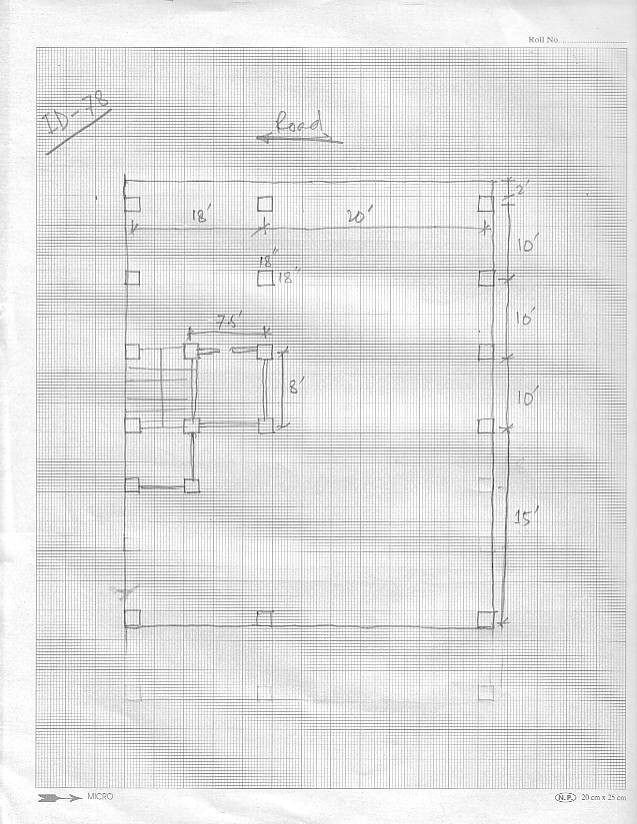 Roll No.
ID-78
Road
2'
18'
20'
10'
18"
18"
10'
7.5'
8'
10'
15'
MICRO
N.P. 20 cm x 25 cm